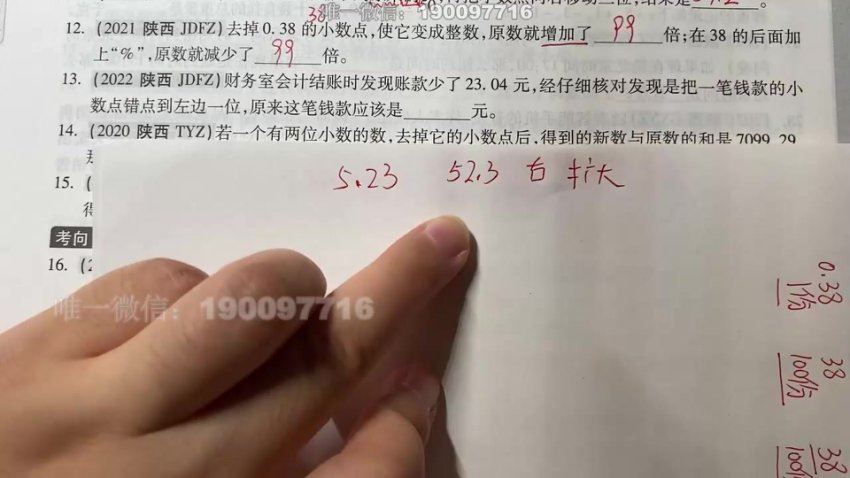 38
唯一微信：190097716
12. (2021 陕西 JDFZ) 去掉 0.38 的小数点，使它变成整数，原数就增加了 99 倍；在 38 的后面加
上“%”，原数就减少了 99 倍。
13. (2022 陕西 JDFZ) 财务室会计结账时发现账款少了 23.04 元，经仔细核对发现是把一笔钱款的小
数点错点到左边一位，原来这笔钱款应该是______元。
14. (2020 陕西 TYZ) 若一个有两位小数的数，去掉它的小数点后，得到的新数与原数的和是 7099.29
5.23 52.3 右 扩大
15.
考向
16.
唯一微信：190097716
0.38
1份
38
100份
38
100份